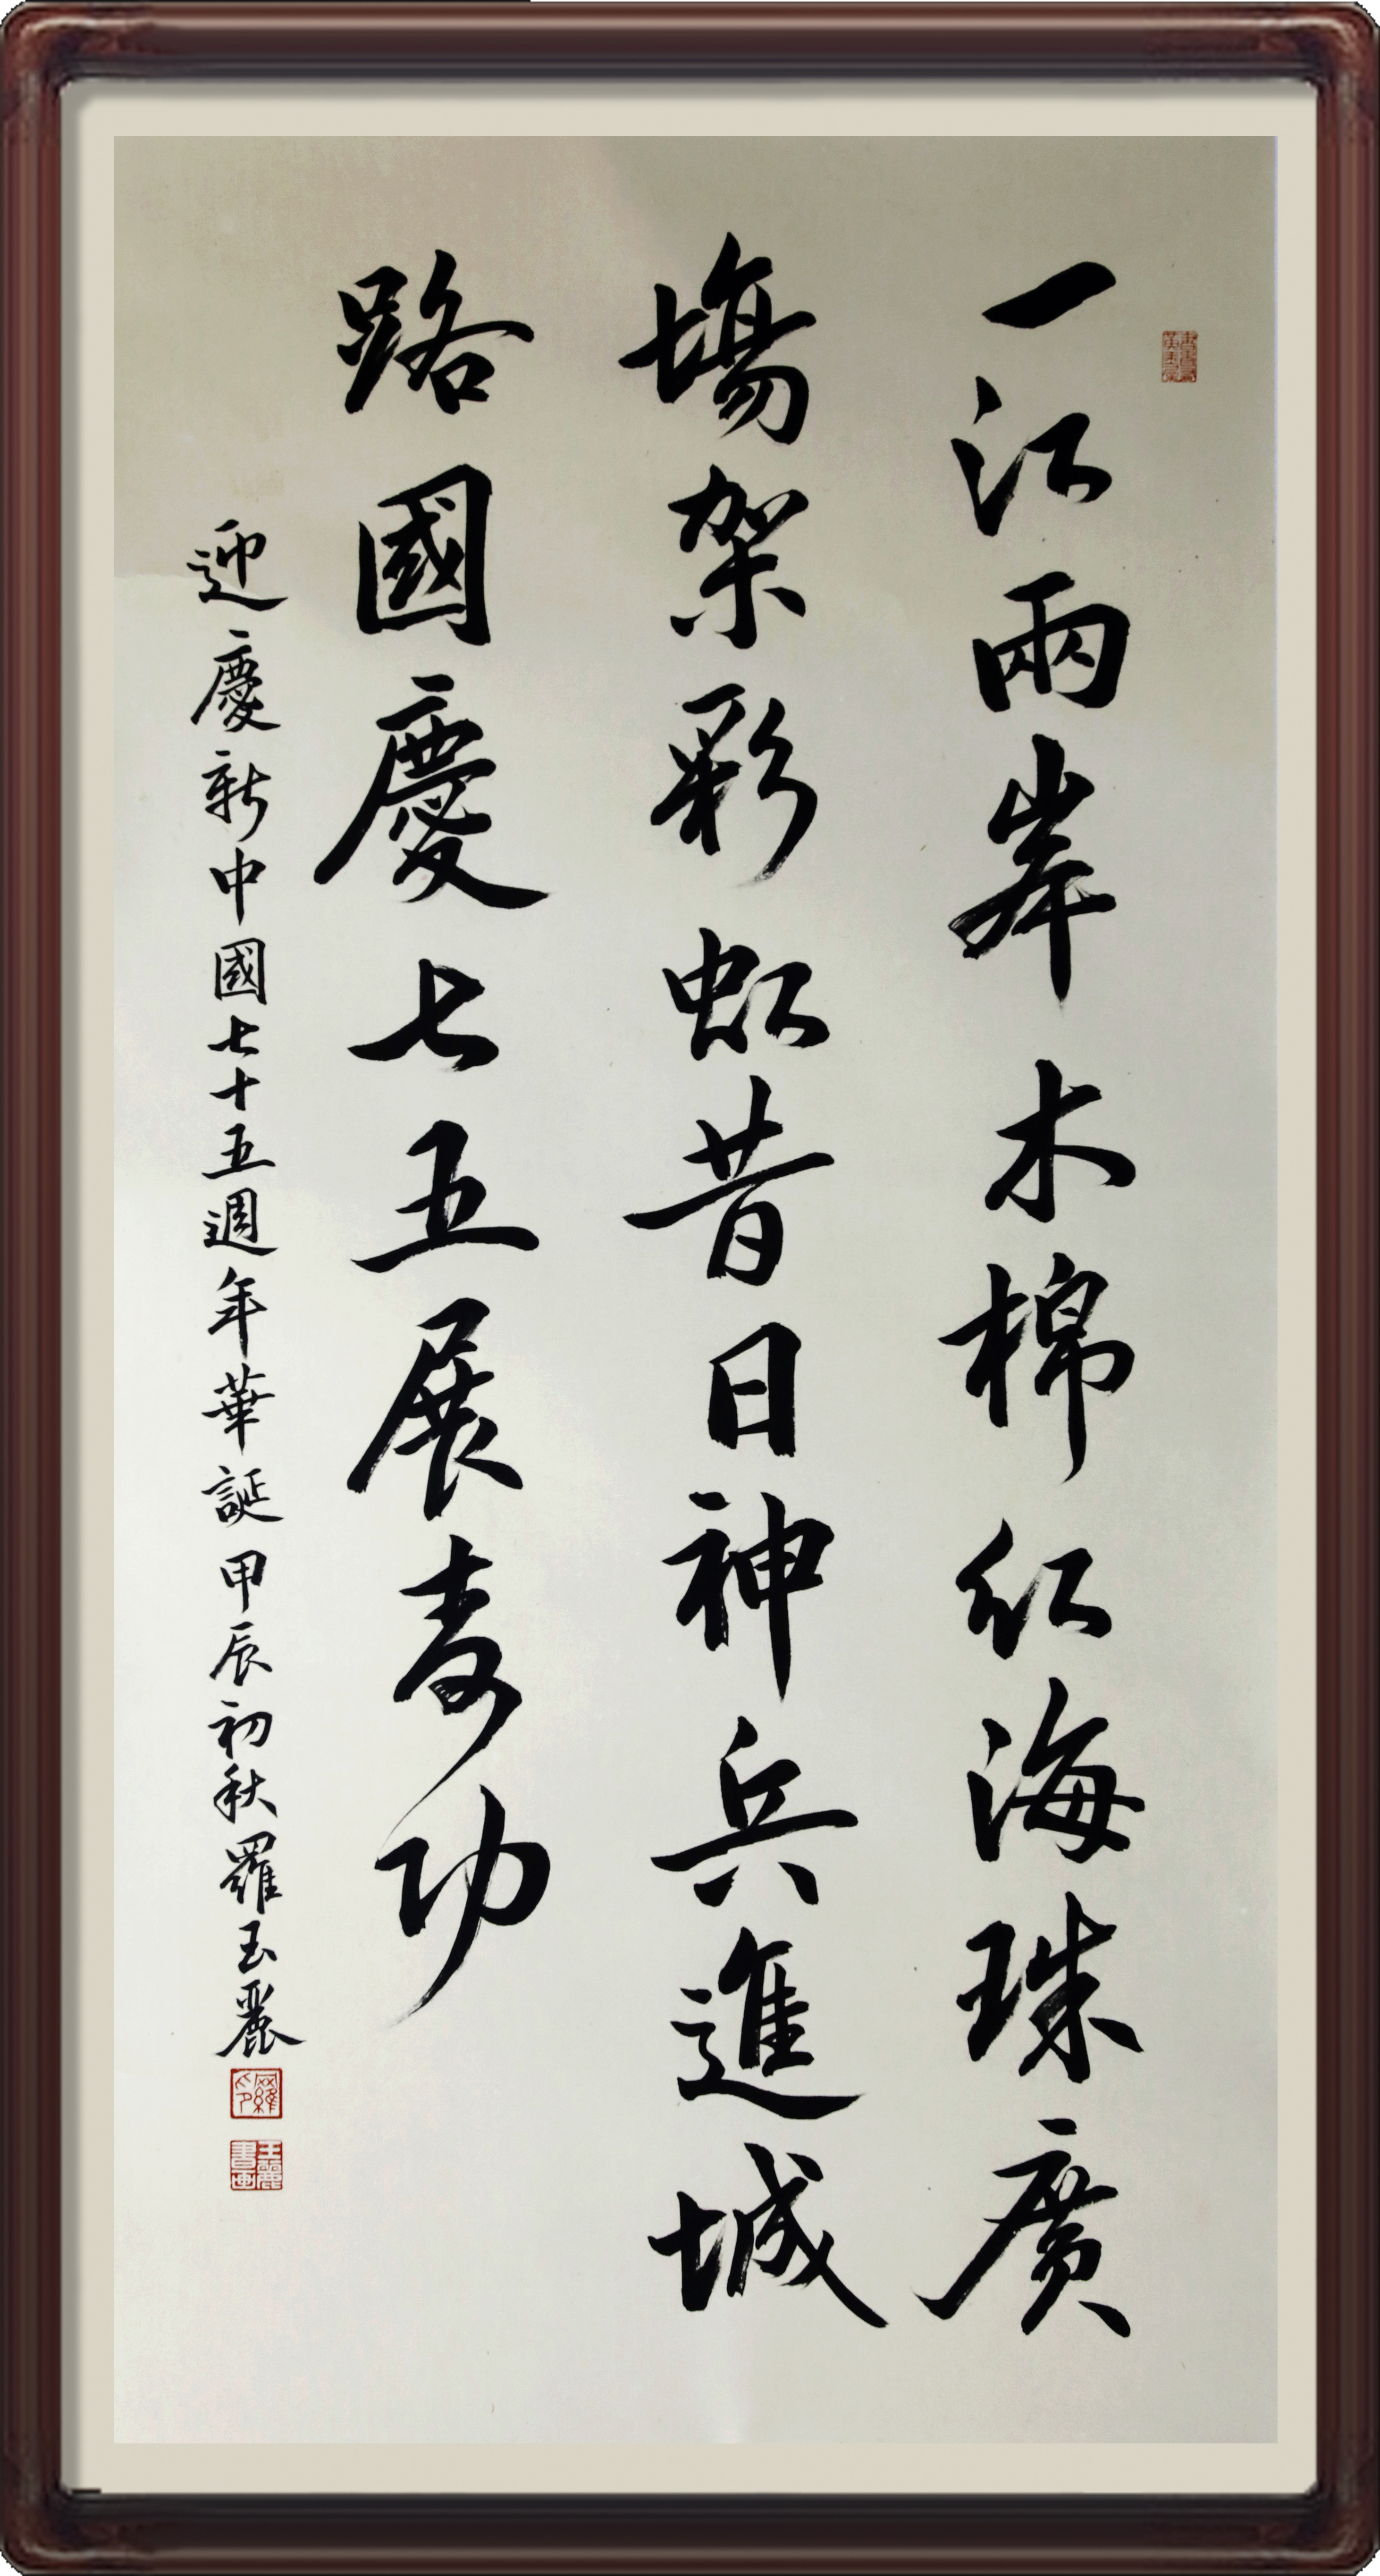 一江兩岸木棉紅海珠廣
塲架彩虹昔日神兵進城
路國慶七五展功
迎慶新中國七十五週年華誕甲辰初秋羅玉麗
羅印
玉麗書画